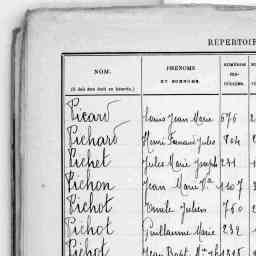 RÉPERTOIR
NOM.
(Il doit être écrit en bâtarde.)
PRÉNOMS
ET SURNOMS.
NUMÉROS
Picard Louis Jean Marie 676
Pichard Henri Fernand Jules 804
Pichet Jules Marie Joseph 231
Pichon Jean Marie 1107
Pichot Emile Julien 760
Pichot Guillaume Marie 232
Pichot Jean Bapt.